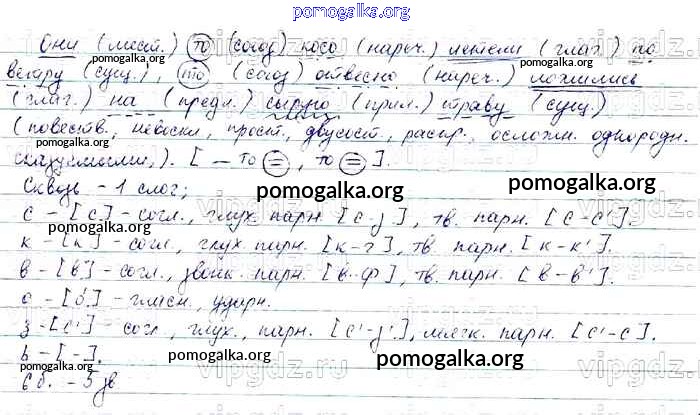 pomogalka.org
Они (мест.) то (союз) косо (нареч.) летели (глаг.) по
ветру (сущ.), то (союз) отвесно (нареч.) ложились
(глаг.) на (предл.) сырую (прил.) траву (сущ.)
(повеств., невоскл., прост., двусост., распр., осложн. однородн.
сказуемыми.). [ – то =, то = ].
Сквозь – 1 слог;
с – [с] – согл., глух. парн. [с-з], тв. парн. [с-с'].
к – [к] – согл., глух. парн. [к-г], тв. парн. [к-к'].
в – [в] – согл., звонк. парн. [в-ф], тв. парн. [в-в'].
о – [о́] – гласн., ударн.
з – [с'] – согл., глух., парн. [с'-з'], мягк. парн. [с'-с].
ь – [-].
6 б. – 5 зв
pomogalka.org
vipgdz.ru